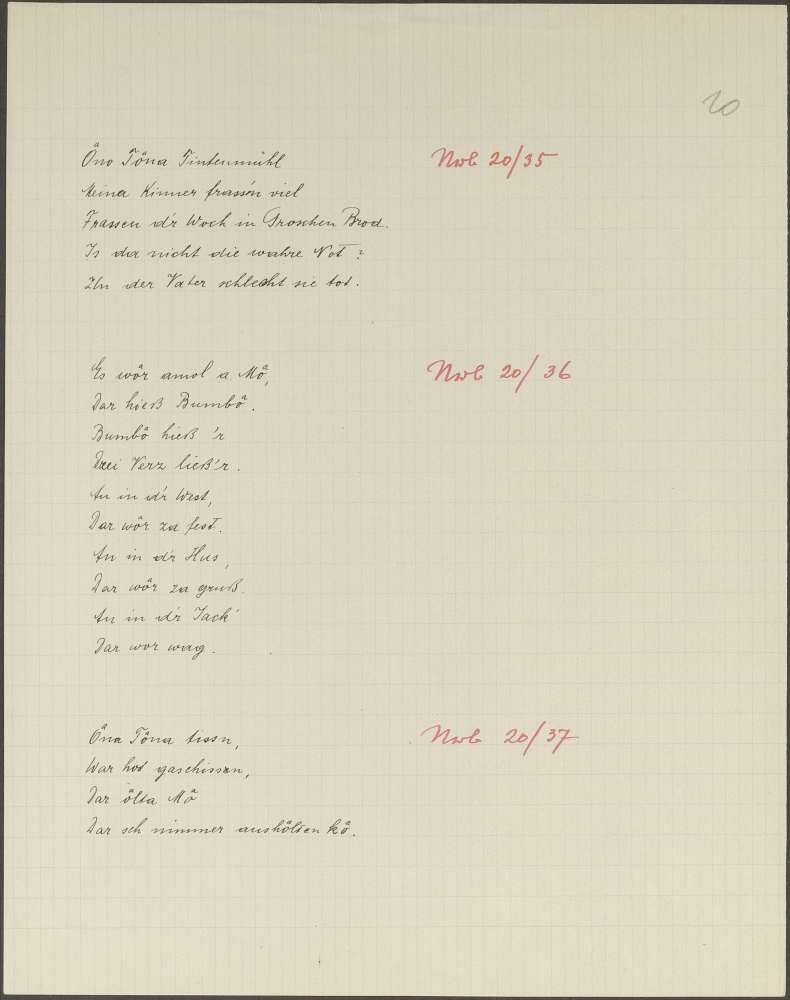 20
Öno Töna Tintenmühl Nrb 20/35
Meina Kinner frassen viel
Frassen d'r Woch in Groschen Brod.
Is der nicht die wahre Not?
Un der Vater schlecht sie tot.
Es wör amol a Mö, Nrb 20/36
Dar hieß Bumbö.
Bumbö hieß 'r
Drei Verz ließ'r.
An in d'r West,
Dar wör za fest.
An in d'r Hus,
Dar wör za gruß.
An in d'r Jack'
Dar wor wag.
Öna Töna tissn, Nrb 20/37
War hot gaschissen,
Dar ölta Mö
Dar sch nimmer aushölten kö.